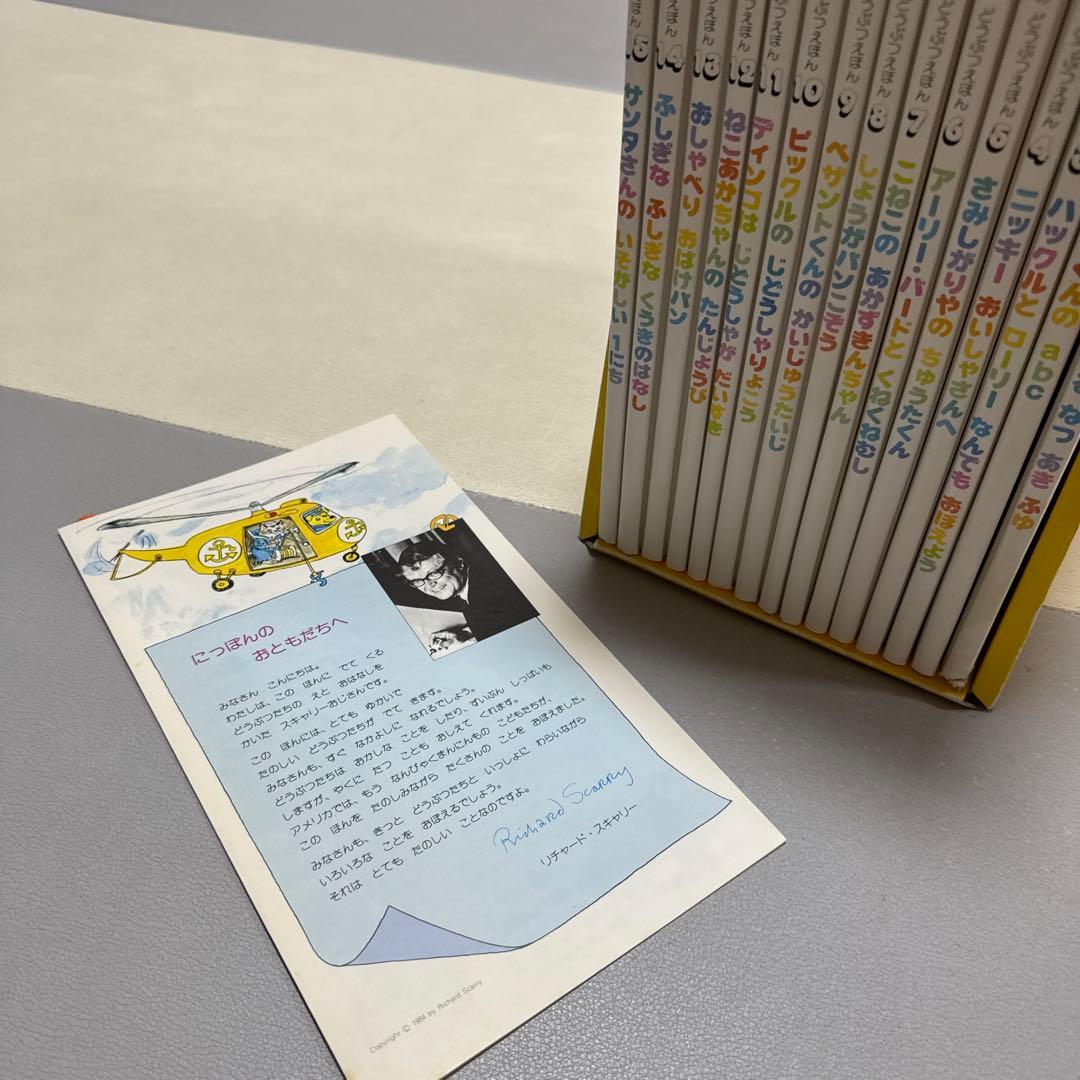 にっぽんの
おともだちへ
みなさん こんにちは。
わたしは、この ほんに でて くる
どうぶつたちの えと おはなしを
かいた スキャリーおじさんです。
この ほんには、とても ゆかいで
たのしい どうぶつたちが でて きます。
みなさんも、すぐ なかよしに なれるでしょう。
どうぶつたちは おかしな ことを したり、ずいぶん しっぱいも
しますが、やくに たつ ことも おしえて くれます。
アメリカでは、もう なんびゃくまんにんもの こどもたちが、
この ほんを たのしみながら たくさんの ことを おぼえました。
みなさんも、きっと どうぶつたちと いっしょに わらいながら
いろいろな ことを おぼえるでしょう。
それは とても たのしい ことなのですよ。
Richard Scarry
リチャード・スキャリー
Copyright © 1984 by Richard Scarry.
えほん 15 サンタさんの いそがしい 1にち
えほん 14 ふしぎな ふしぎな くうきのはなし
えほん 13 おしゃべり おばけパン
つえほん 12 ねこあかちゃんの たんじょうび
つえほん 11 ディンゴは じどうしゃが だいすき
ぶつえほん 10 ピックルの じどうしゃりょこう
ぶつえほん 9 ペザントくんの かいじゅうたいじ
うぶつえほん 8 しょうがパンこぞう
どうぶつえほん 7 こねこの あかずきんちゃん
どうぶつえほん 6 アーリー・バードと くねくねむし
どうぶつえほん 5 さみしがりやの ちゅうたくん
どうぶつえほん 4 ニッキー おいしゃさんへ
3 ハックルと ローリー なんでも おぼえよう
くんの abc
なつ あき ふゆ